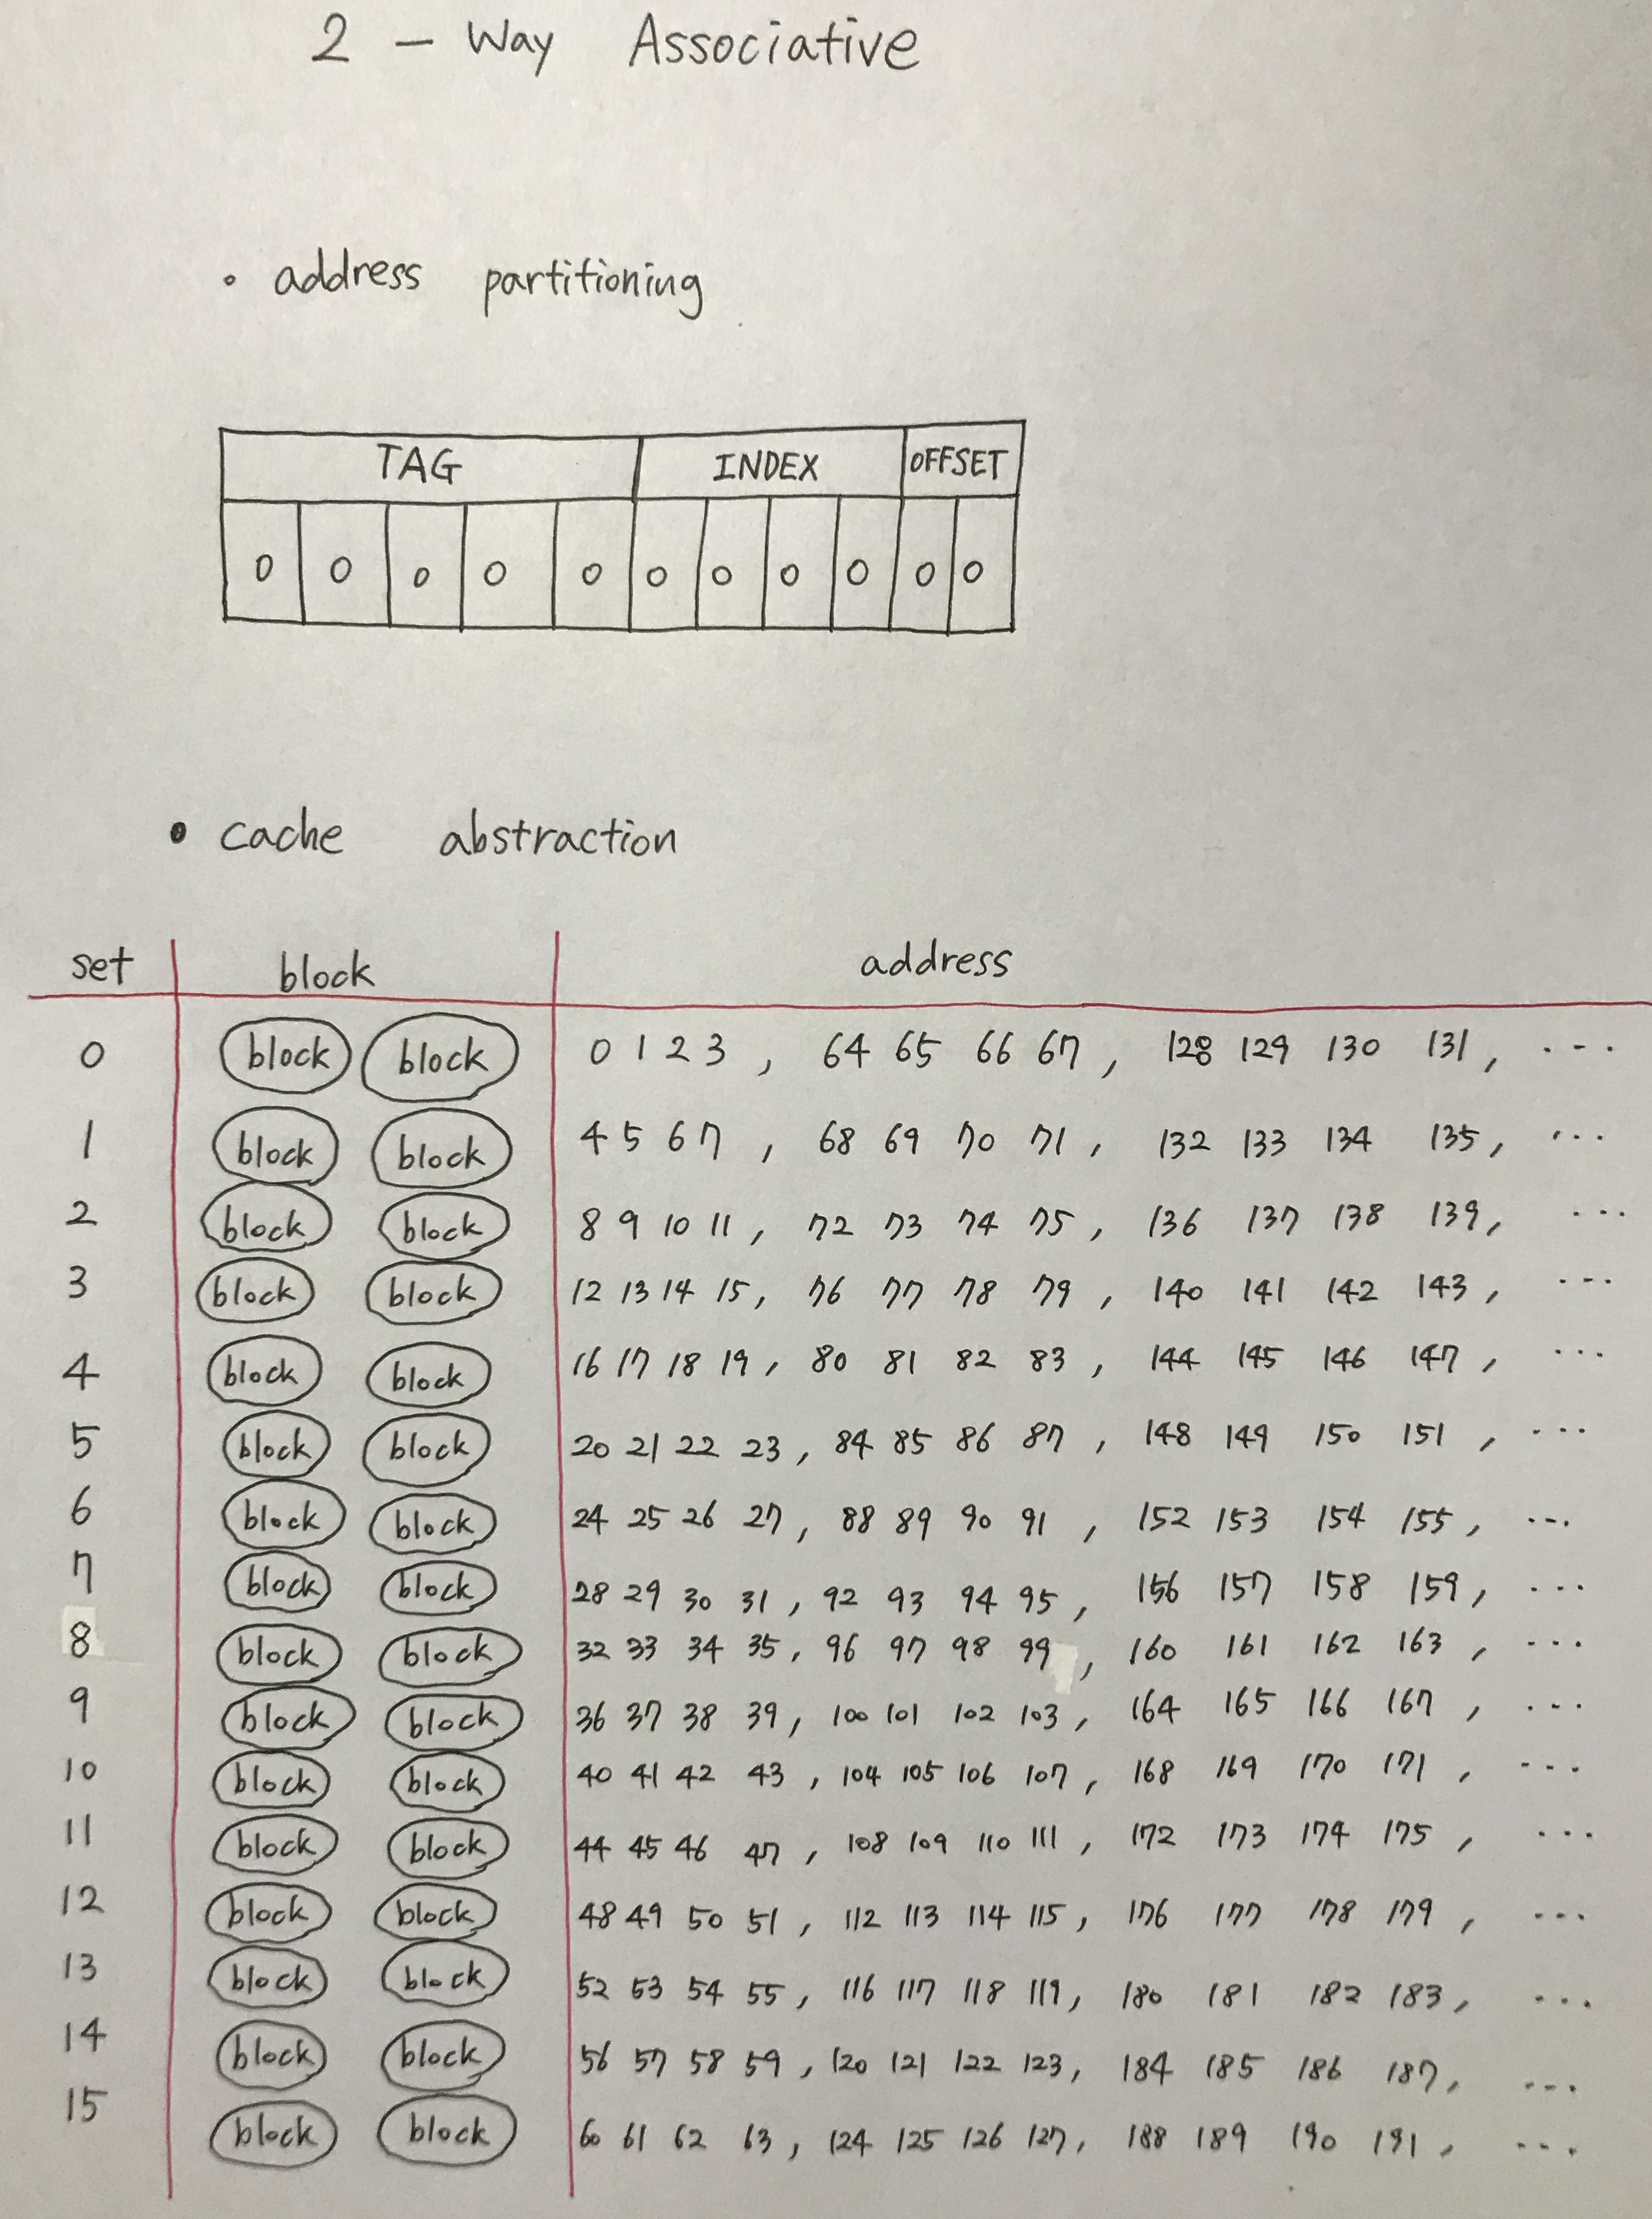 2 - Way Associative
• address partitioning
TAG INDEX OFFSET
0 0 0 0 0 0 0 0 0 0 0
• cache abstraction
set block address
0 block block 0 1 2 3 , 64 65 66 67 , 128 129 130 131 , ...
1 block block 4 5 6 7 , 68 69 70 71 , 132 133 134 135 , ...
2 block block 8 9 10 11 , 72 73 74 75 , 136 137 138 139 , ...
3 block block 12 13 14 15 , 76 77 78 79 , 140 141 142 143 , ...
4 block block 16 17 18 19 , 80 81 82 83 , 144 145 146 147 , ...
5 block block 20 21 22 23 , 84 85 86 87 , 148 149 150 151 , ...
6 block block 24 25 26 27 , 88 89 90 91 , 152 153 154 155 , ...
7 block block 28 29 30 31 , 92 93 94 95 , 156 157 158 159 , ...
8 block block 32 33 34 35 , 96 97 98 99 , 160 161 162 163 , ...
9 block block 36 37 38 39 , 100 101 102 103 , 164 165 166 167 , ...
10 block block 40 41 42 43 , 104 105 106 107 , 168 169 170 171 , ...
11 block block 44 45 46 47 , 108 109 110 111 , 172 173 174 175 , ...
12 block block 48 49 50 51 , 112 113 114 115 , 176 177 178 179 , ...
13 block block 52 53 54 55 , 116 117 118 119 , 180 181 182 183 , ...
14 block block 56 57 58 59 , 120 121 122 123 , 184 185 186 187 , ...
15 block block 60 61 62 63 , 124 125 126 127 , 188 189 190 191 , ...